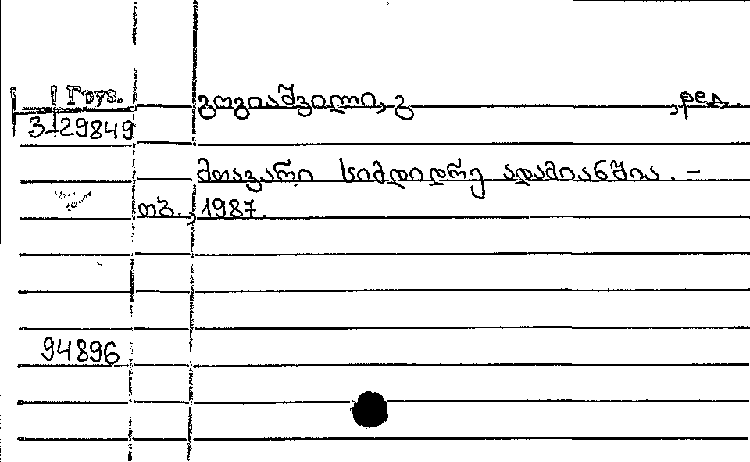 Груз. გოგიაშვილი, გ ,ред.
3-29849
მთავარი სიმდიდრე ადამიანშია. –
თბ., 1987.
94896